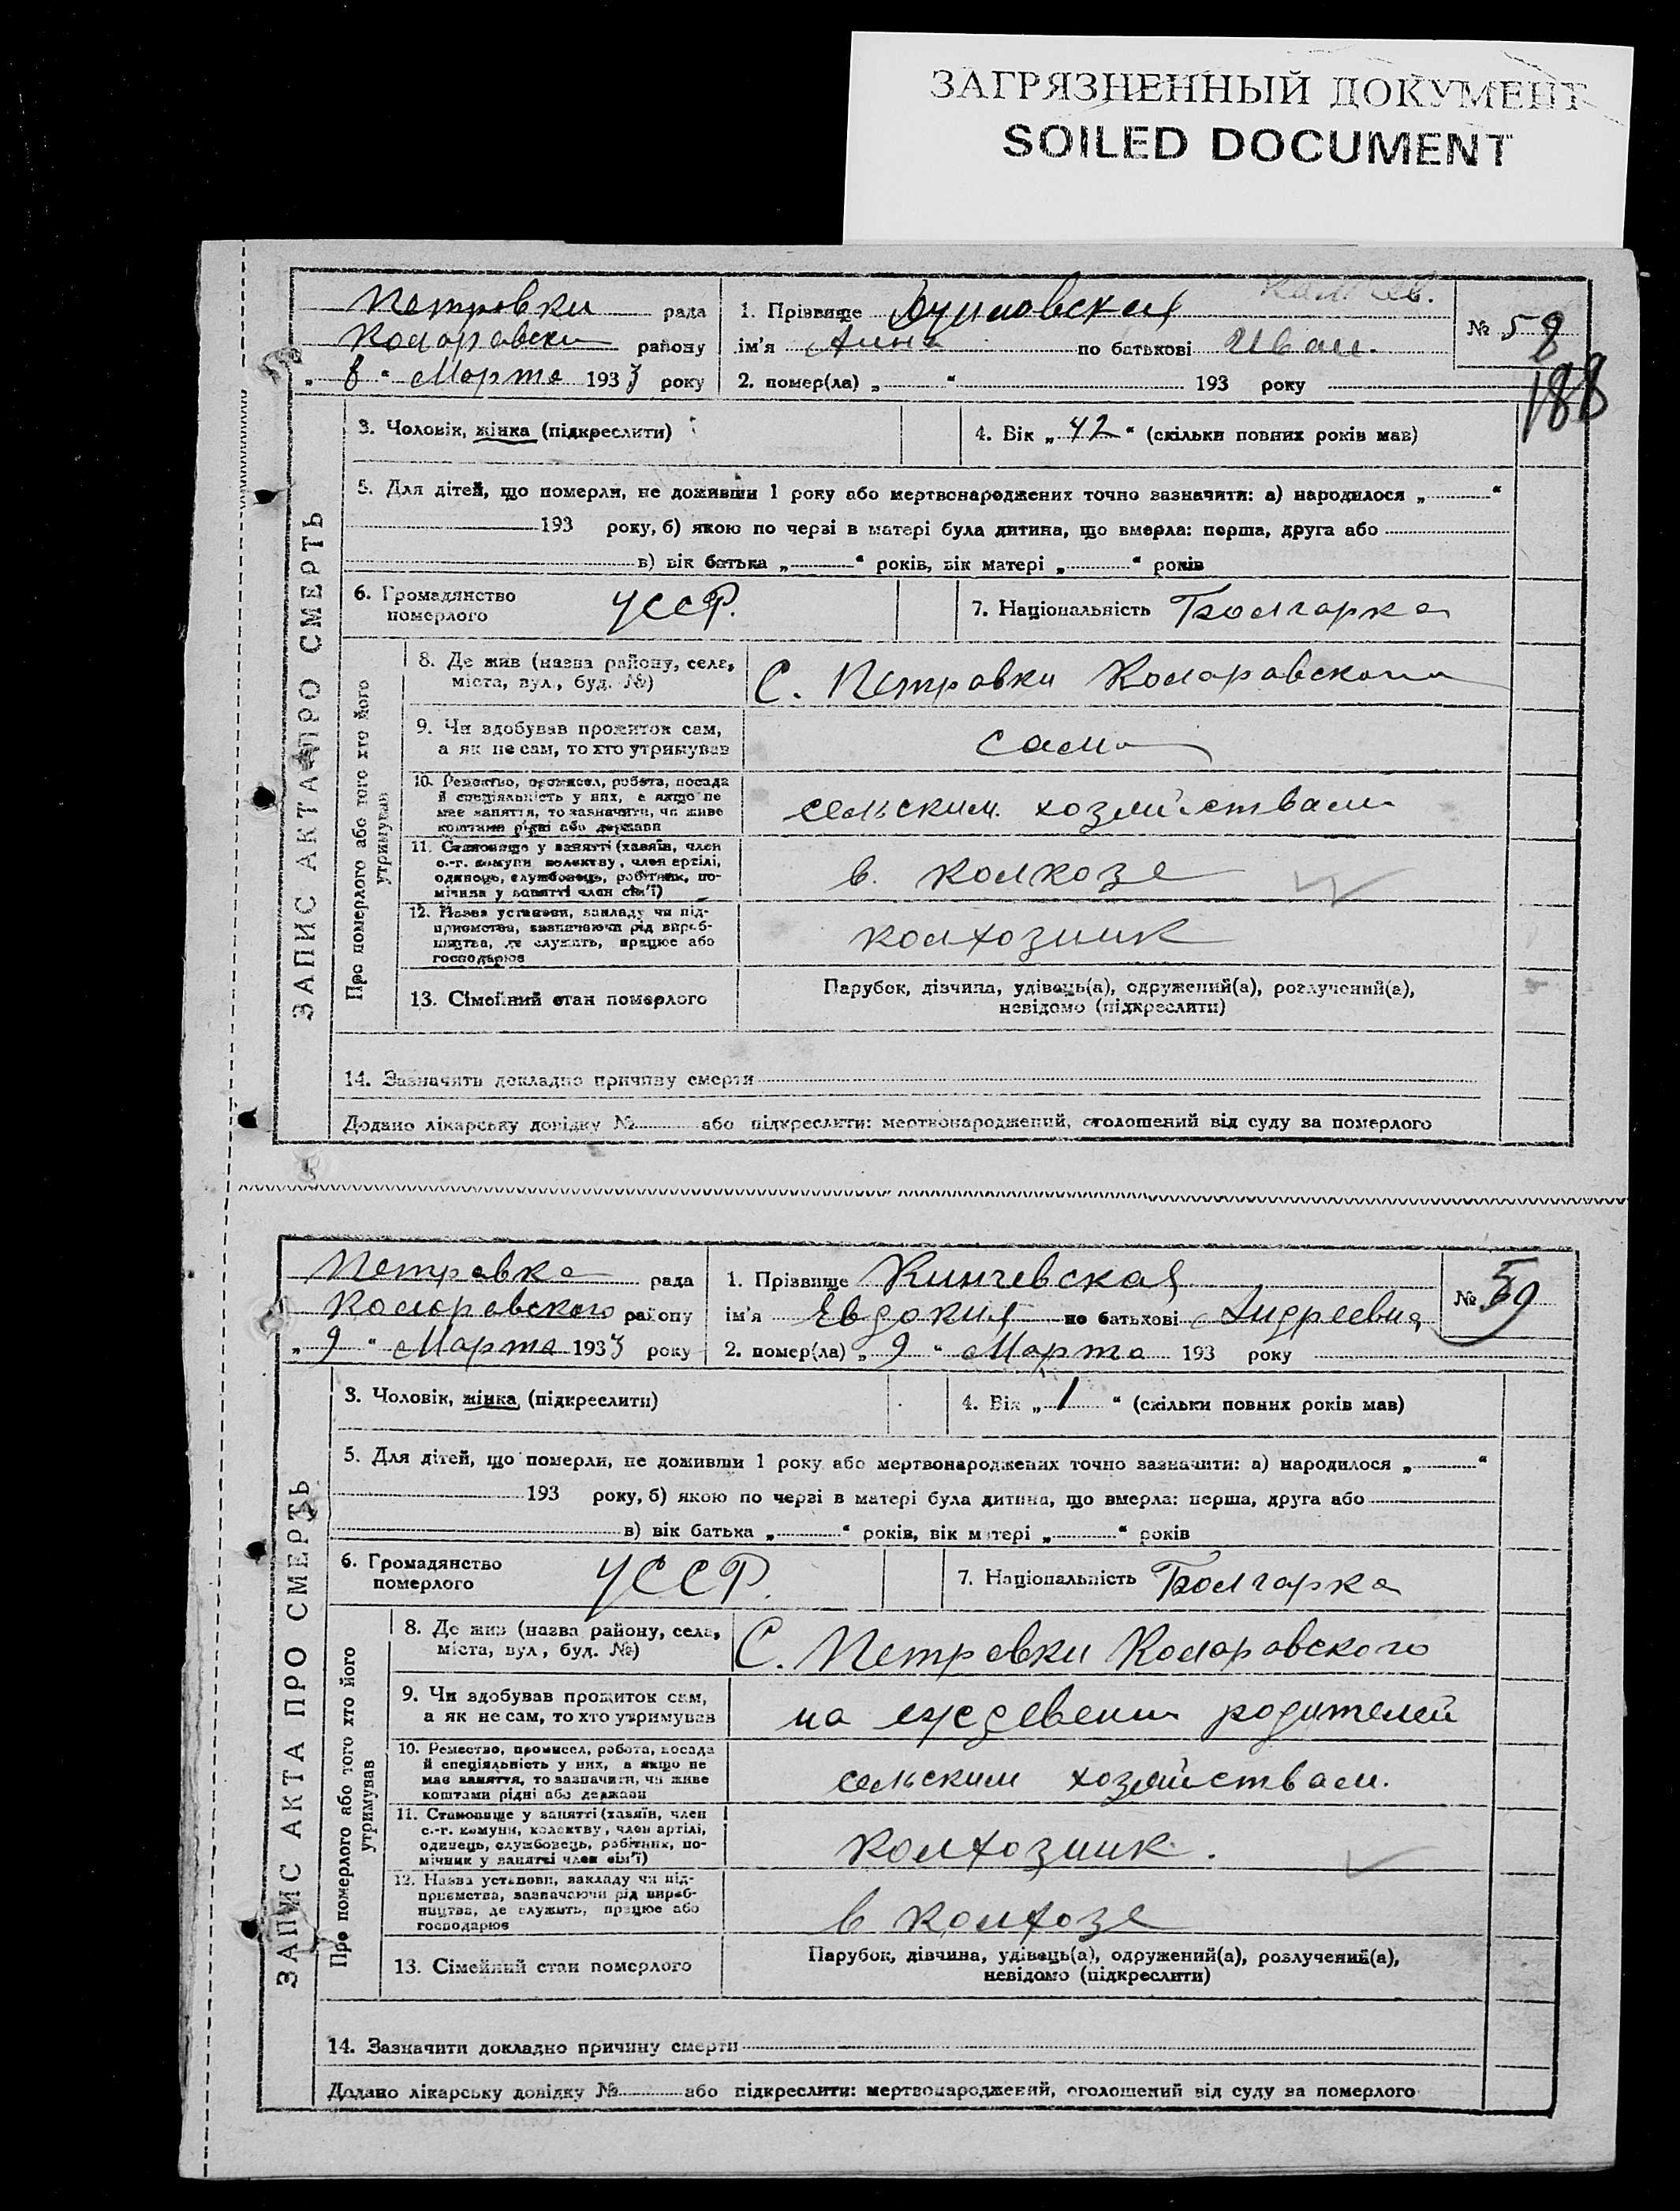 ЗАГРЯЗНЕННЫЙ ДОКУМЕНТ
SOILED DOCUMENT
Петровки рада
Коларовски району
„ 8 “ Марта 1933 року
1. Прізвище
ім'я Анна по батькові Иван.
2. помер(ла) „ “ 193 року
№ 58
188
ЗАПИС АКТА ПРО СМЕРТЬ
3. Чоловік, жінка (підкреслити)
4. Вік „ 42 “ (скільки повних років мав)
5. Для дітей, що померли, не доживши 1 року або мертвонароджених точно зазначити: а) народилося „ “
193 року, б) якою по черзі в матері була дитина, що вмерла: перша, друга або
в) вік батька „ “ років, вік матері „ “ років
6. Громадянство
померлого
УССР.
7. Національність Болгарка
Про померлого або того хто його
утримував
8. Де жив (назва району, села,
міста, вул., буд. №)
С. Петровки Коларовского
9. Чи здобував прожиток сам,
а як не сам, то хто утримував
сама
10. Ремество, промисел, робота, посада
й спеціяльність у них, а якщо не
має заняття, то зазначити, чи живе
коштами рідні або держави
сельским хозяйствам
11. Становище у занятті (хазяїн, член
с.-г. комуни колектву, член артілі,
одинець, службовець, робітник, по-
мічник у занятті член сім'ї)
в. колхозе
12. Назва установи, закладу чи під-
приємства, зазначаючи рід вироб-
ництва, де служить, працює або
господарює
колхозник
13. Сімейний стан померлого
Парубок, дівчина, удівець(а), одружений(а), розлучений(а),
невідомо (підкреслити)
14. Зазначити докладно причину смерти
Додано лікарську довідку № або підкреслити: мертвонароджений, оголошений від суду за померлого
Петровка рада
Коларовского району
„ 9 “ Марта 1933 року
1. Прізвище Кинчевская
ім'я Евдокия по батькові Андреевна
2. помер(ла) „ 9 “ Марта 193 року
№ 59
ЗАПИС АКТА ПРО СМЕРТЬ
3. Чоловік, жінка (підкреслити)
4. Вік „ 1 “ (скільки повних років мав)
5. Для дітей, що померли, не доживши 1 року або мертвонароджених точно зазначити: а) народилося „ “
193 року, б) якою по черзі в матері була дитина, що вмерла: перша, друга або
в) вік батька „ “ років, вік матері „ “ років
6. Громадянство
померлого
УССР.
7. Національність Болгарка
Про померлого або того хто його
утримував
8. Де жив (назва району, села,
міста, вул., буд. №)
С. Петровки Коларовского
9. Чи здобував прожиток сам,
а як не сам, то хто утримував
на еждевении родителей
10. Ремество, промисел, робота, посада
й спеціяльність у них, а якщо не
має заняття, то зазначити, чи живе
коштами рідні або держави
сельским хозяйствам.
11. Становище у занятті (хазяїн, член
с.-г. комуни, колектву, член артілі,
одинець, службовець, робітник, по-
мічник у занятті член сім'ї)
колхозник.
12. Назва установи, закладу чи під-
приємства, зазначаючи рід вироб-
ництва, де служить, працює або
господарює
в колхозе
13. Сімейний стан померлого
Парубок, дівчина, удівець(а), одружений(а), розлучений(а),
невідомо (підкреслити)
14. Зазначити докладно причину смерти
Додано лікарську довідку № або підкреслити: мертвонароджений, оголошений від суду за померлого